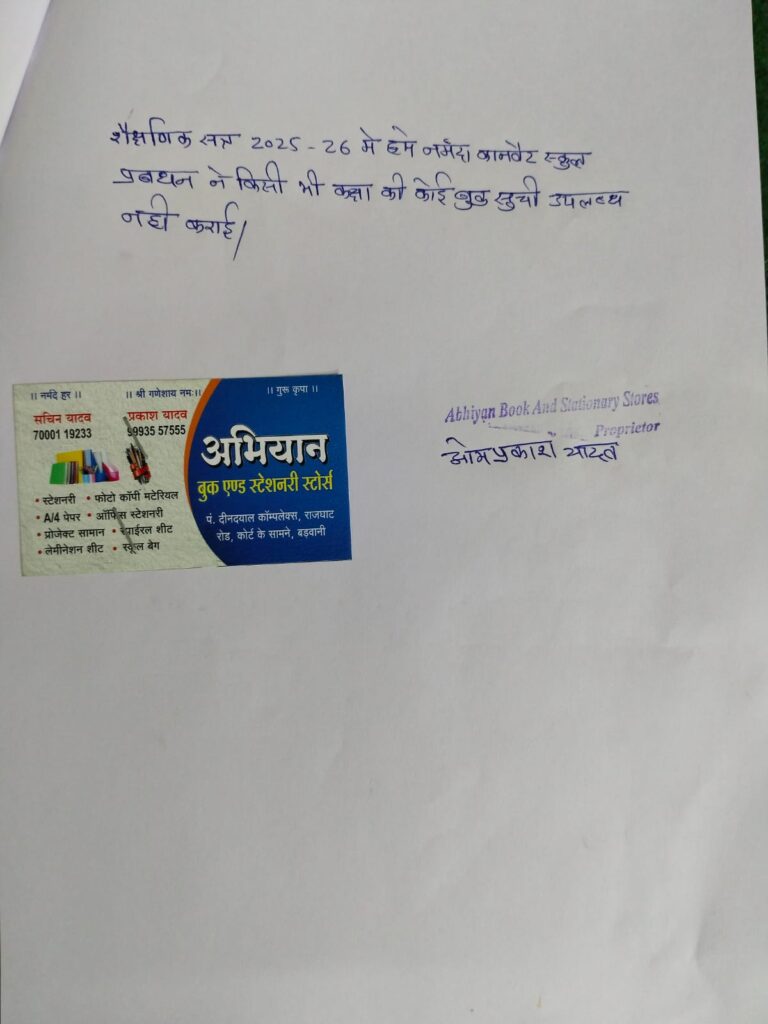 शैक्षणिक सत्र 2025-26 मे हमे नर्मदा कानवेंट स्कुल
प्रबधन ने किसी भी कक्षा की कोई बुक सुची उपलब्ध
नही कराई।
।। नर्मदे हर ।। ।। श्री गणेशाय नमः।। ।। गुरू कृपा ।।
सचिन यादव प्रकाश यादव
70001 19233 99935 57555
अभियान
बुक एण्ड स्टेशनरी स्टोर्स
• स्टेशनरी • फोटो कॉपी मटेरियल
• A/4 पेपर • ऑफिस स्टेशनरी
• प्रोजेक्ट सामान • स्पाईरल शीट
• लेमीनेशन शीट • स्कूल बेग
पं. दीनदयाल कॉम्पलेक्स, राजघाट
रोड, कोर्ट के सामने, बड़वानी
Abhiyan Book And Stationary Stores
Proprietor
ओमप्रकाश यादव